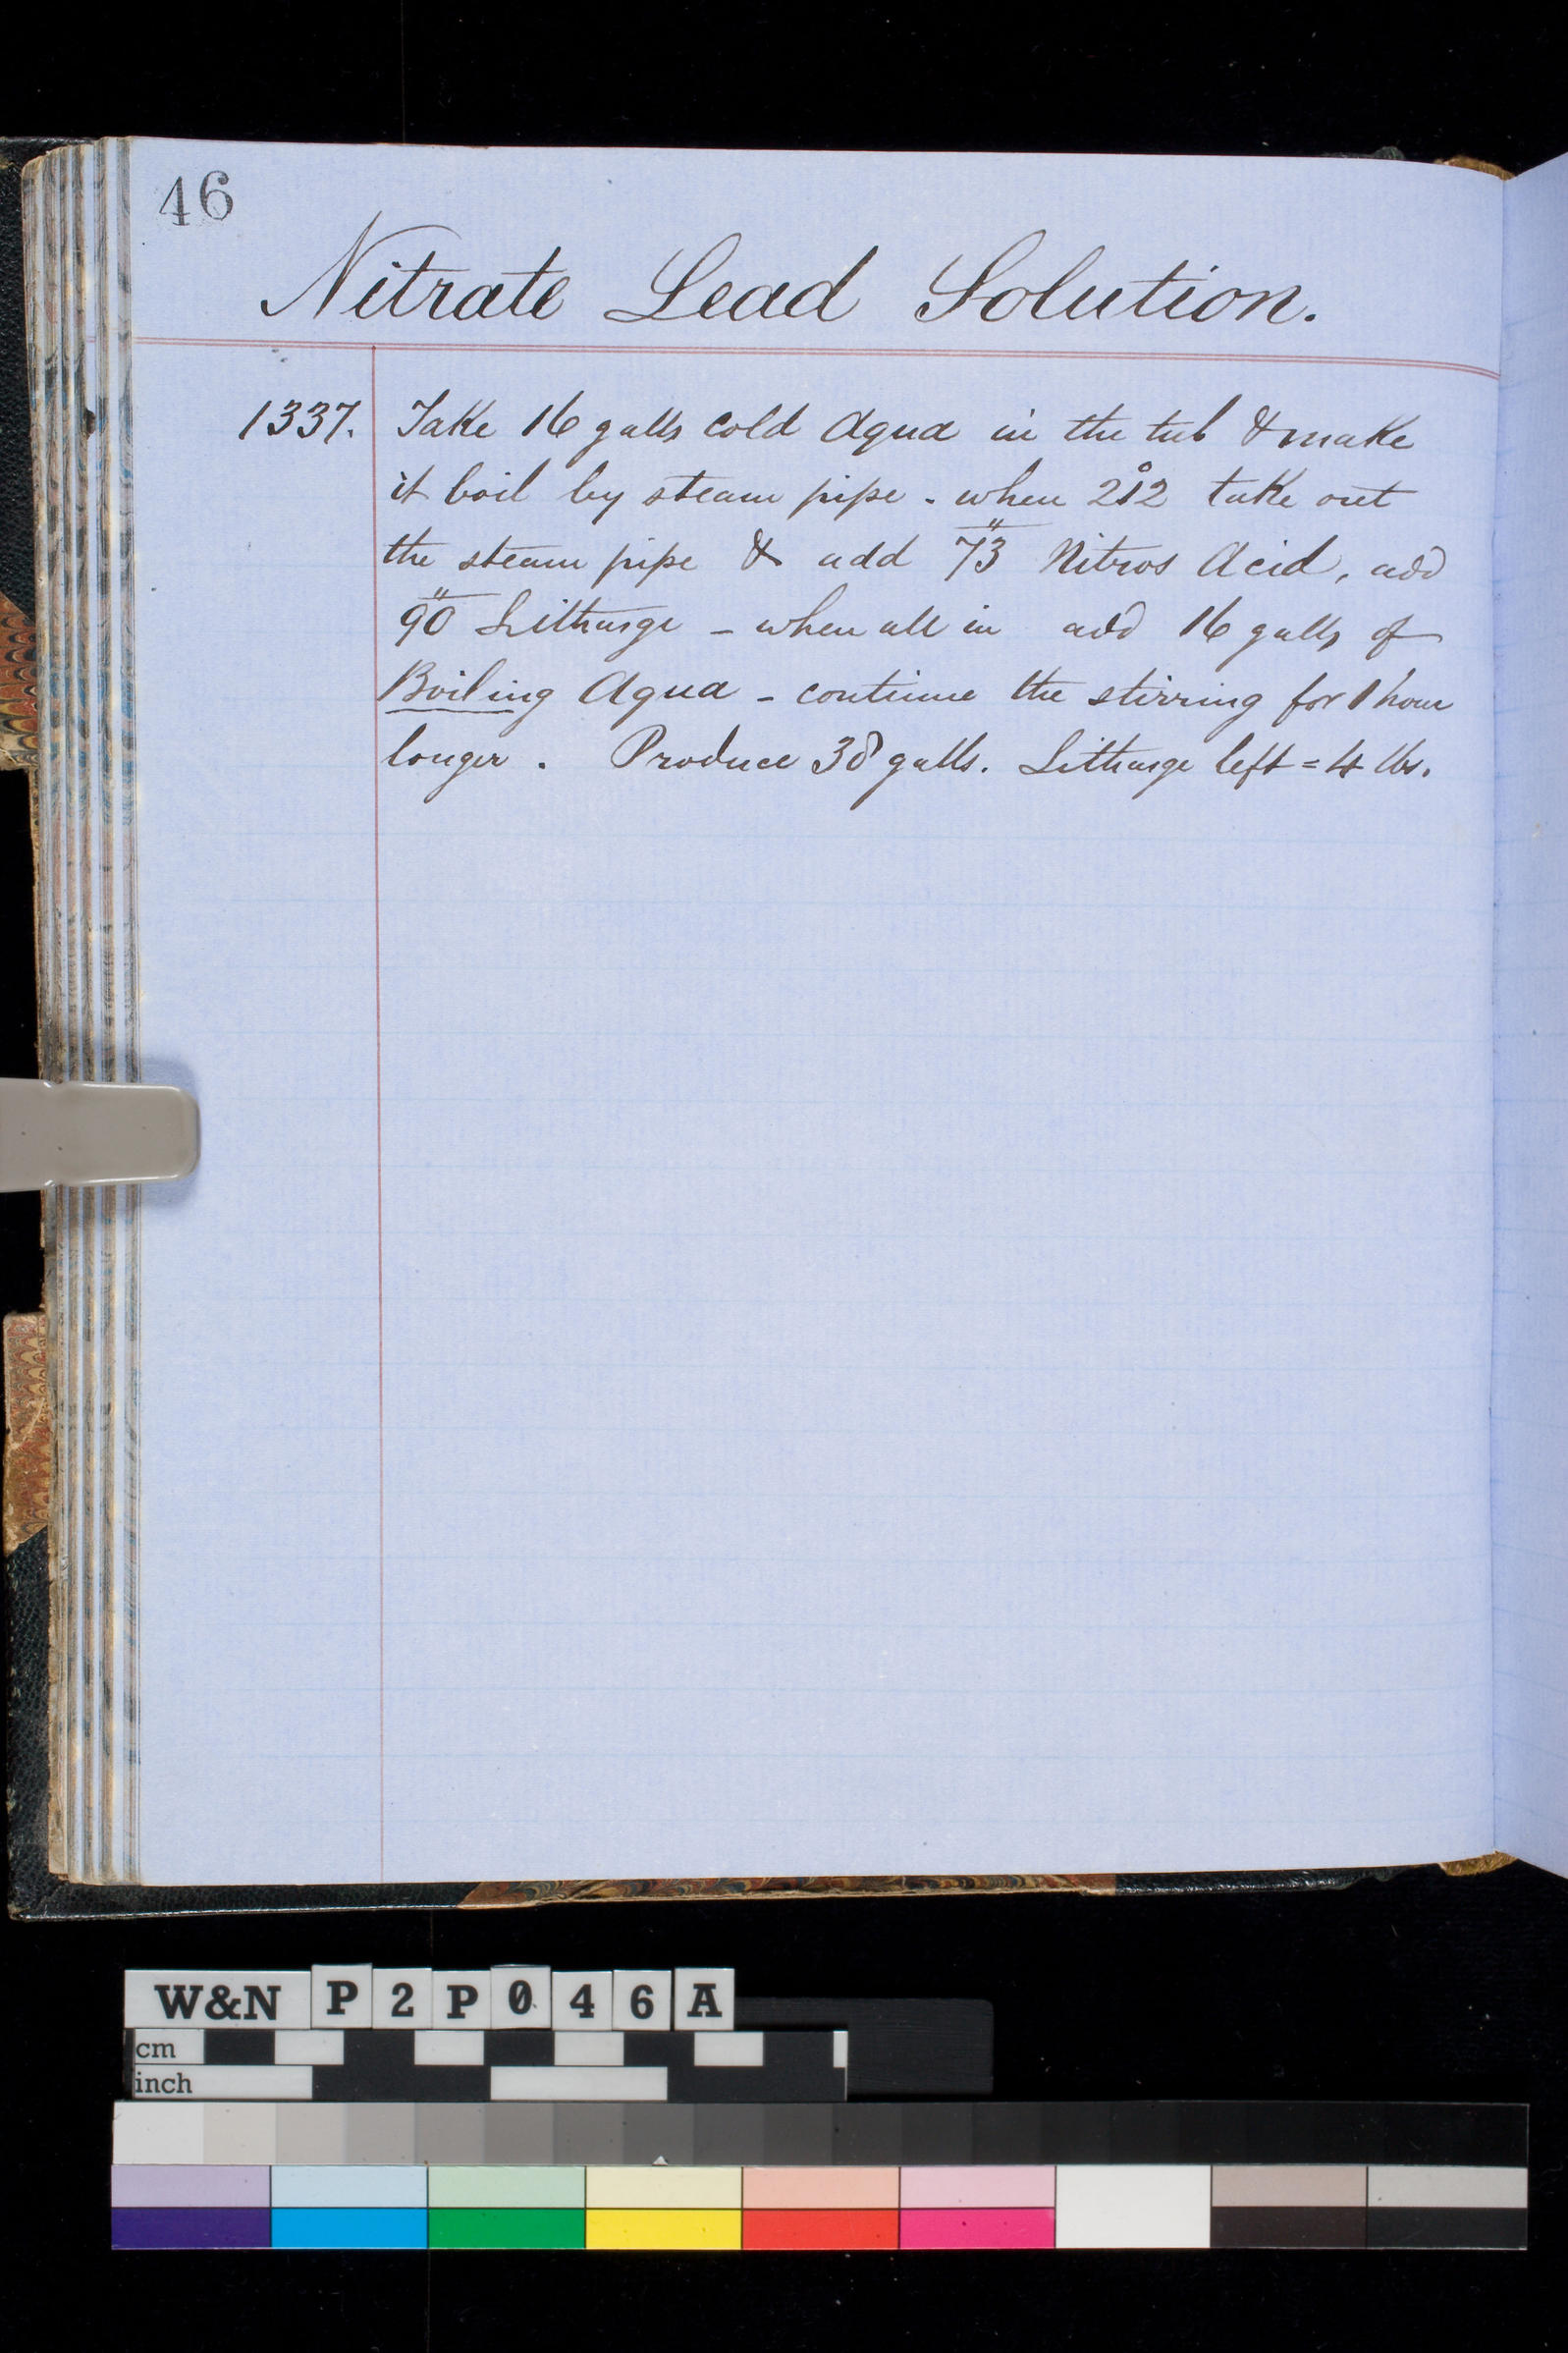 46
Nitrate Lead Solution.
1337. Take 16 galls cold Aqua in the tub & make
it boil by steam pipe - when 212° take out
the steam pipe & add 73" Nitros Acid, add
90" Litharge - when all in add 16 galls of
Boiling Aqua - continue the stirring for 1 hour
longer. Produce 38 galls. Litharge left = 4 lbs.
W&N P2P046A
cm
inch